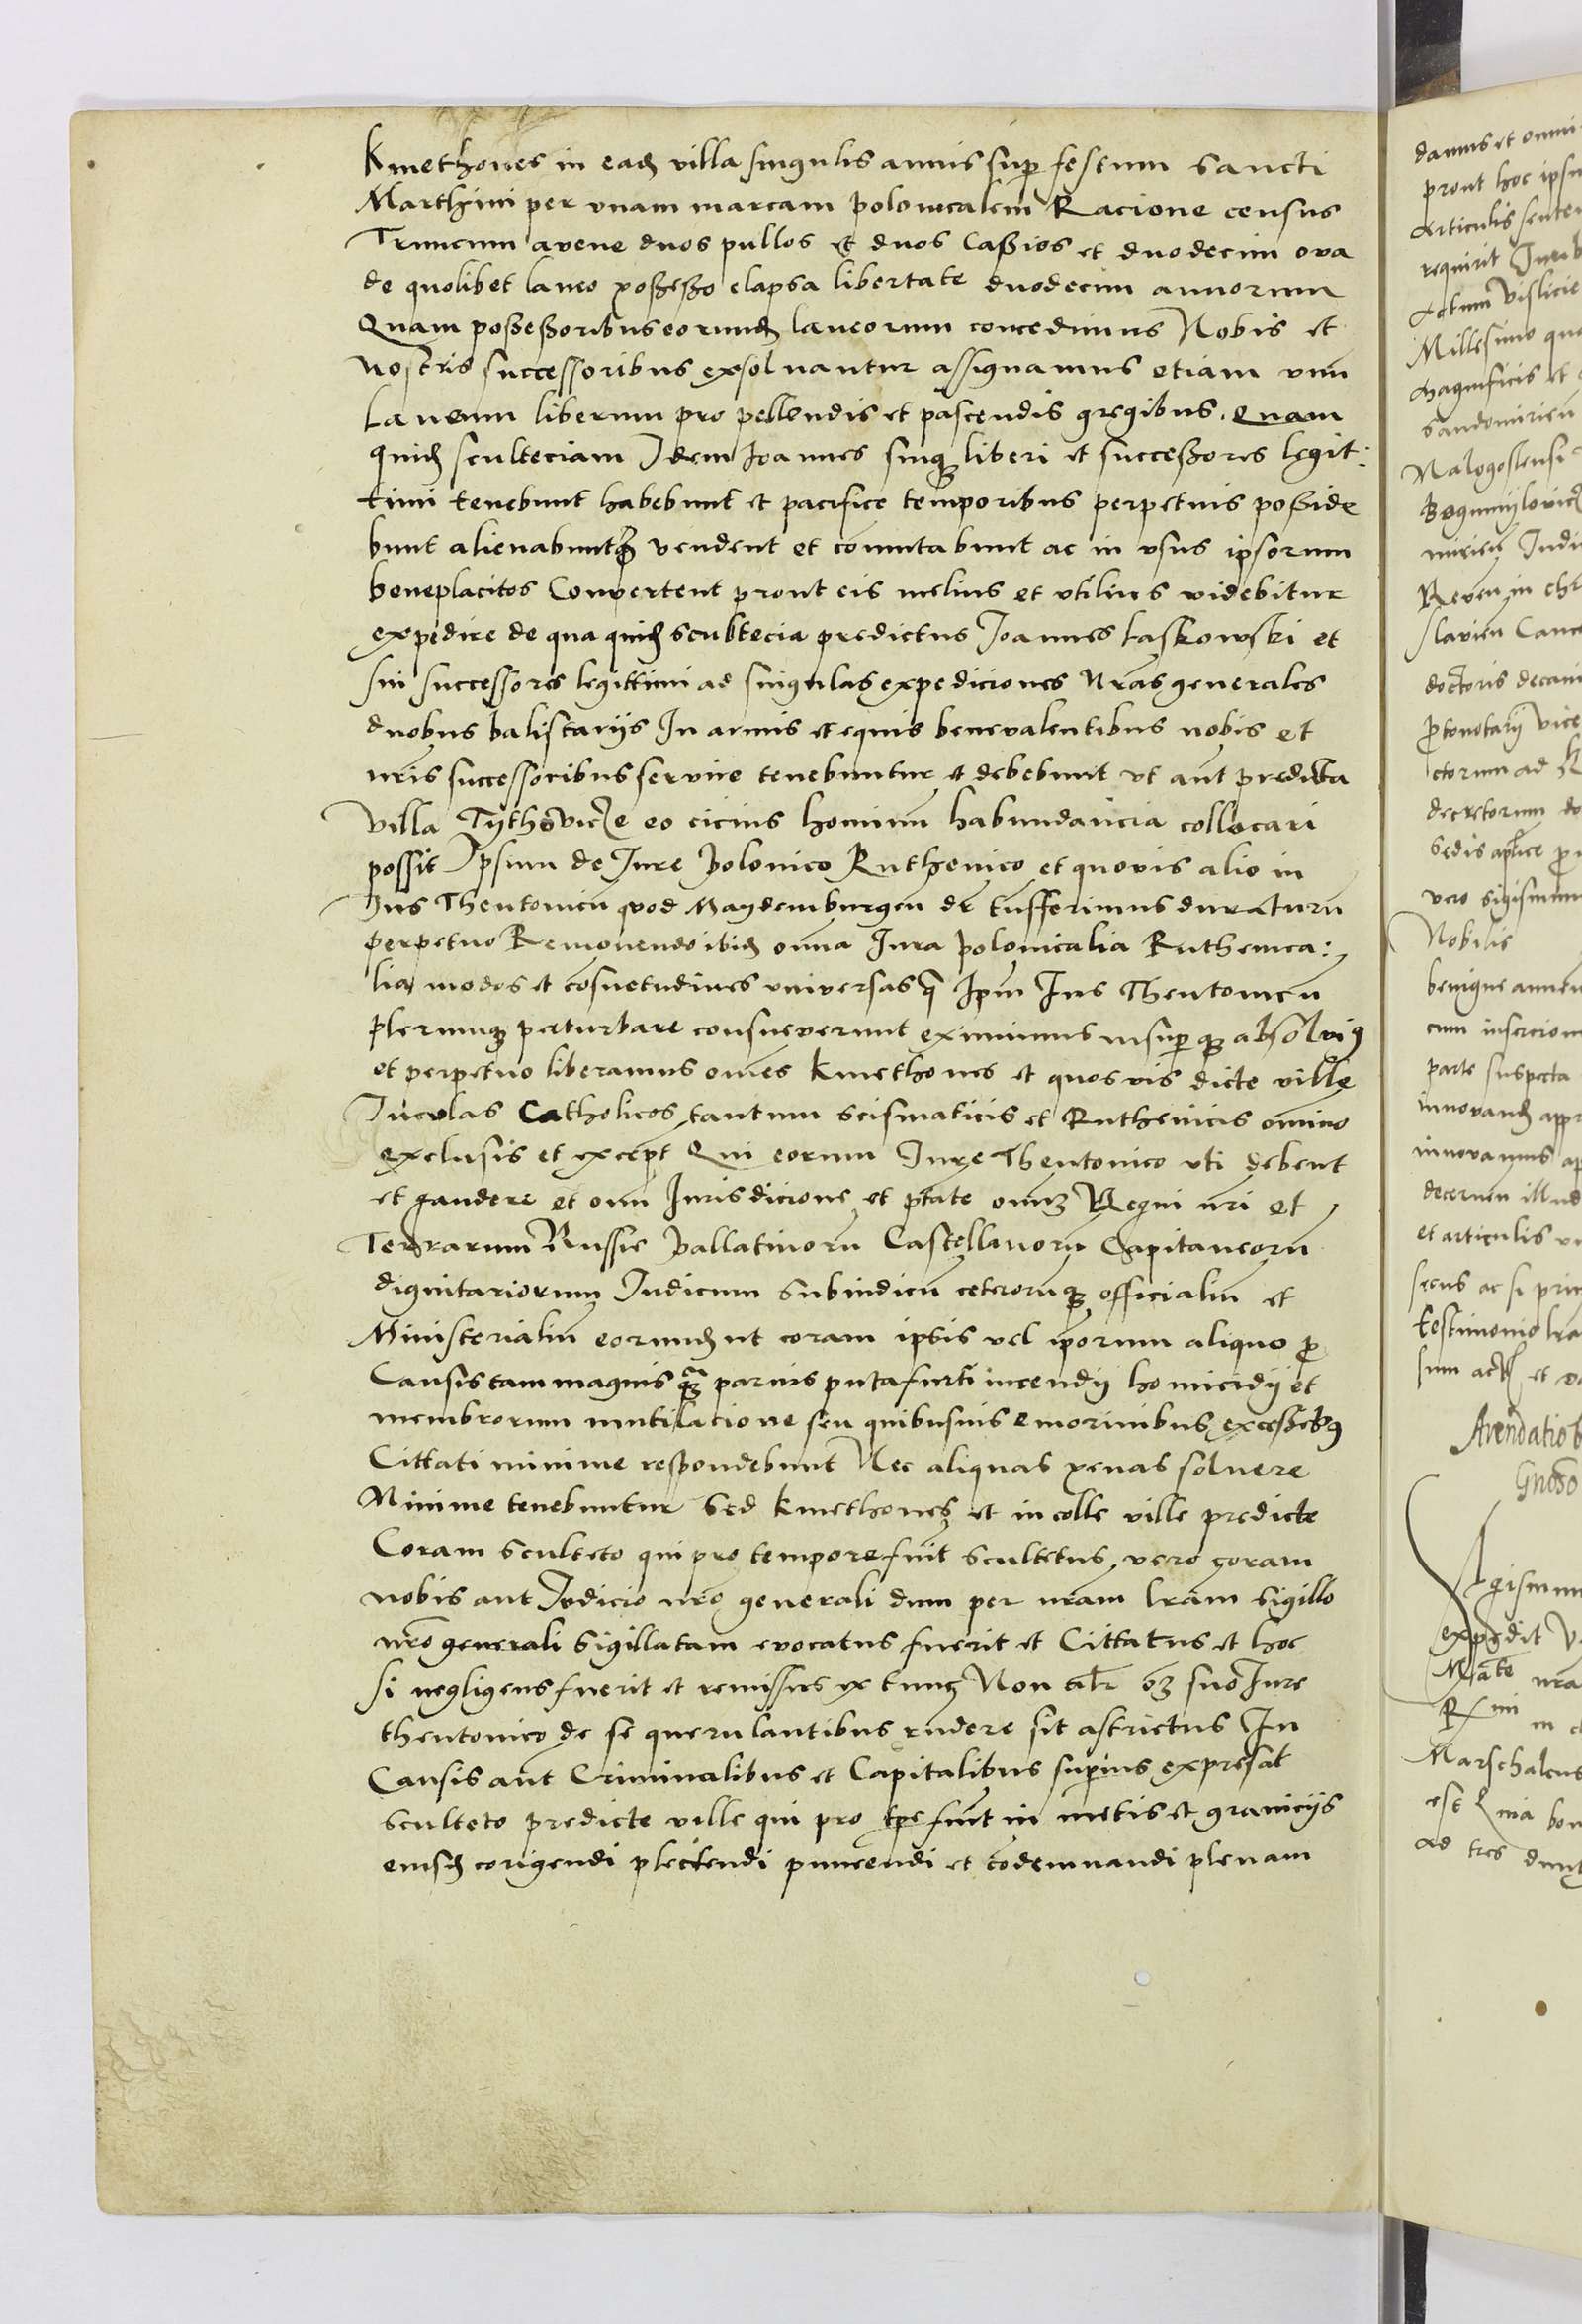 Kmethones in eadem villa singulis annis super festum sancti
Marthini per vnam marcam polonicalem Racione census
Truncum avene duos pullos et duos Caßios et duodecim ova
de quolibet laneo poßeßo elapsa libertate duodecim annorum
Quam poßeßoribus eorundem laneorum concedimus Nobis et
nostris successoribus exsoluantur assignamus etiam vnū
Laneum liberum pro pellendis et pascendis gregibus. Quam
quidem sculteciam Idem Joannes suique liberi et succeßores legit:
timi tenebunt habebunt et pacifice temporibus perpetuis poßide
bunt alienabuntque vendent et cōmutabunt ac in vsus ipsorum
beneplacitos Convertent prout eis melius et vtilius videbitur
expedire de qua quidem scultecia predictus Joannes Laskowski et
sui successores legittimi ad singulas expediciones nrās generales
duobus balistariis In armis et equis benevalentibus nobis et
nrīs successoribus servire tenebuntur et debebunt vt aut̄ predicta
villa Tythovicze eo cicius hominū habundancia collocari
possit Ipsum de Iure Polonico Ruthenico et quovis alio in
Ius Theutonicū quod Maydemburgen dr̄ trāsferimus duraturū
perpetuo Removendo ibidem omnia Iura polonicalia Ruthenica:
lia modos et cōsuetudines vniversas q̄ Ipm̄ Ius Theutonicū
plerumque perturbare consueverunt eximimus insuperque absolvimus
et perpetuo liberamus omēs Kmethones et quosvis dicte ville
Incolas Catholicos tantum scismaticis et Ruthenicis omīno
exclusis et except Qui eorum Iure Theutonico vti debent
et gaudere et omī Iurisdicione et ptāte omniū Regni nrī et
Terrarum Russie Pallatinorū Castellanorū Capitaneorū
dignitariorum Iudicum Subiudicū ceterorūque officialiū et
Ministerialiū eorundem ut coram ipsis vel ipsorum aliquo pro
Causis tam magnis quam parvis puta furti incendij homicidij et
membrorum mutilacione seu quibusuis enormibus exceßibus
Cittati minime respondebunt Nec aliquas penas soluere
Minime tenebuntur Sed Kmethones et incolle ville predicte
Coram sculteto qui pro tempore fuīt scultetus vero coram
nobis aut Iudicio nrō generali dum per nrām lrām sigillo
nrō generali sigillatam evocatus fuerit et Cittatus et hoc
si negligens fuerit et remissus ex tunc Non alr̄ quam suo Iure
theutonico de se querulantibus rn̄dere sit astrictus In
Causis aut̄ Criminalibus et Capitalibus superius expressat
sculteto predicte ville qui pro tpe fuīt in metis et graniciis
eiusdem corigendi plectendi puniendi et cōdemnandi plenam
damus et omni
prout hoc ipsu
Articulis senten
requirit
Actum Vislicie
Millesimo qua
Magnificis et
Sandomirien̄
Malogostensi
Bogumylovicz
mirien̄ Iudi
Reveren̄ in chr
slavien̄ Canc
doctoris decani
protonotarii vice
ctorum ad
decretorum do
Sedis aplice pro
vero sigismun
Nobilis
benigne annen
cum insercion
parte suspecta
innovand appr
innovamus ap
decernen̄ illud
et articulis
secus ac si prin
testimonio lrā
sum
Arendatio
Gnoso
Sigismun
expedit
Mrāte nrā
Rmi in
Marschalcus
est Quia bon
ad tres